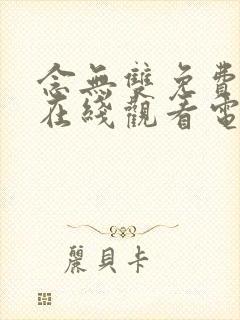 念無雙免費
在綫觀看電
麗貝卡